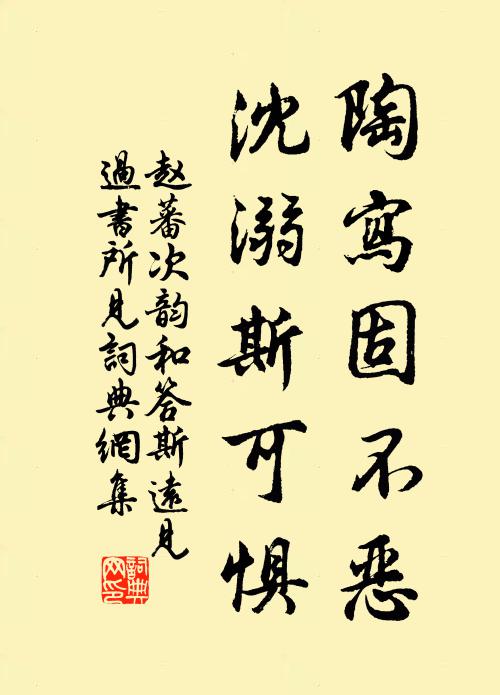 陶寫固不惡
沈溺斯可惧
赵蕃次韵和答斯遠見
過書所見詞典網集
詞典網印